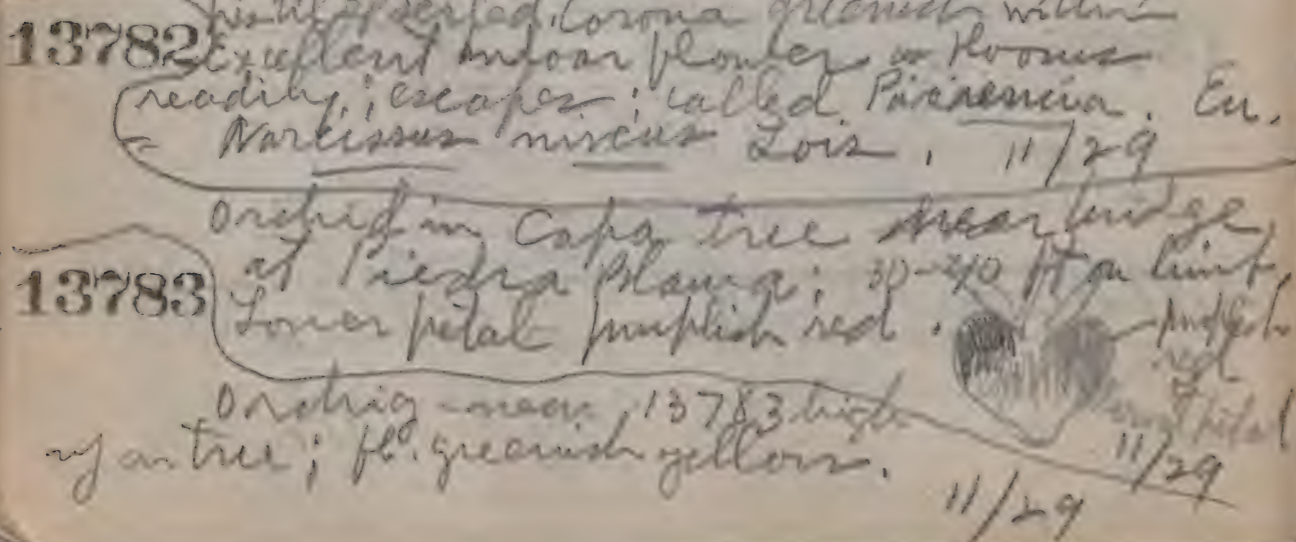 Corona greenish within
13782 Excellent indoor flower
readily; escapes; called Paciencia. Eu.
Narcissus niveus Lois. 11/29
Orchid in Capa tree near bridge,
13783 at Piedra Blanca; 30-40 ft on limb,
Lower petal purplish red. purplish
red
petal
Orchid near 13783 high
up on tree; fl. greenish yellow. 11/29
11/29